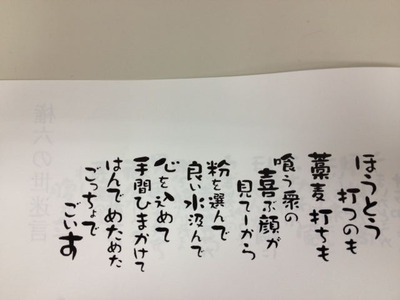 ほうとう
打つのも
藁麦打ちも
喰う衆の
喜ぶ顔が
見てーから
粉を選んで
良い水汲んで
心を込めて
手間ひまかけて
はんで めためた
ごっちょで
ごいす
権六の世迷言